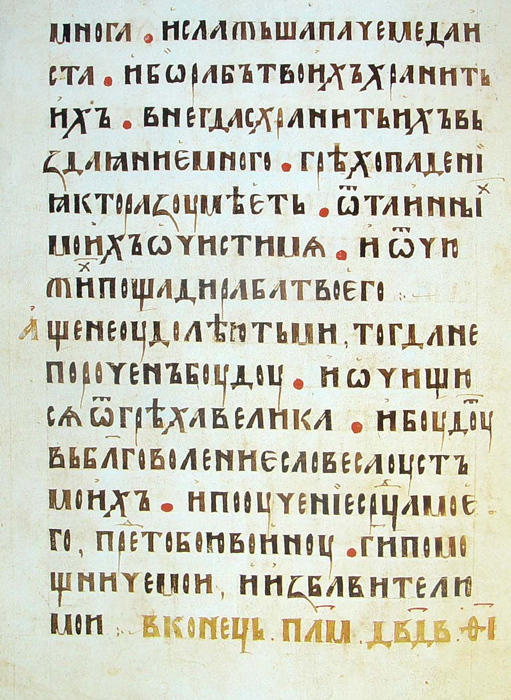 многа . исламьшапаче медаи
ста . ибѡрабътвоихъхранить
ихъ . внегдасхранитьихъвъ
ꙁдаꙗниемного . грѣхопадені
ꙗктораꙁоумѣеть . ѿтаиныⷯі
моихъѡчистимѧ . иѿчю
жⷯипощадирабатвоего
Ащенеоудолѣютьми, тогдане
пороченъбоудоу . иѡчищю
сѧѿгрѣхавелика . ибоудоуⷮ
вьблговолениесловесаоустъ
моихъ . ипооучениесрⷣцамое
го, прⷣетобоювоиноу . гипомо
щничемои, ииꙁбавителю
мои : вконець . п҃лм . дв҃дв . ѳ҃і